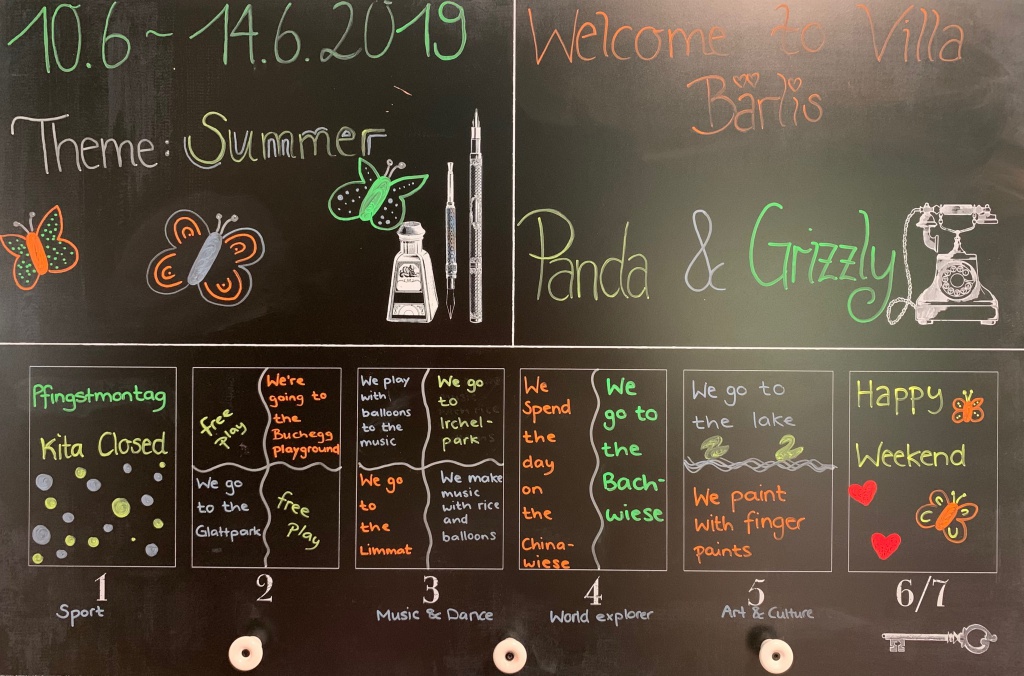 10.6 - 14.6.2019
Theme: Summer
Welcome to Villa
Bärlis
Panda & Grizzly
Pfingstmontag
Kita Closed
1
Sport
free
play
We're
going to
the
Buchegg
playground
We go
to the
Glattpark
free
play
2
We play
with
balloons
to the
music
We go
to
Irchel-
park
We go
to
the
Limmat
We make
music
with rice
and
balloons
3
Music & Dance
We
Spend
the
day
on
the
China-
wiese
We
go to
the
Bach-
wiese
4
World explorer
We go to
the lake
We paint
with finger
paints
5
Art & Culture
Happy
Weekend
6/7